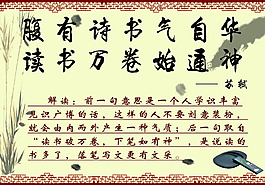 腹有诗书气自华
读书万卷始通神
——苏轼
解读：前一句意思是一个人学识丰富
见识广博的话，这样的人不要刻意装扮，
就会由内而外产生一种气质；后一句取自
“读书破万卷，下笔如有神”，是说读的
书多了，落笔写文更有文采。